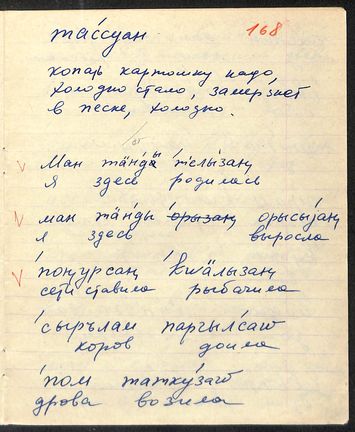 168
та́ссуан
копать картошку надо,
холодно стало, замёрзнет
в песке, холодно.
Ман тӓнды те́лызаӊ
я здесь родилась
ман тӓнды орызаӊ орысыјаӊ
я здесь выросла
́поӊгурсаӊ ́квӓлызаӊ
сети ставила рыбачила
́сырълам паргылсат
коров доила
́пом таткузат
дрова возила